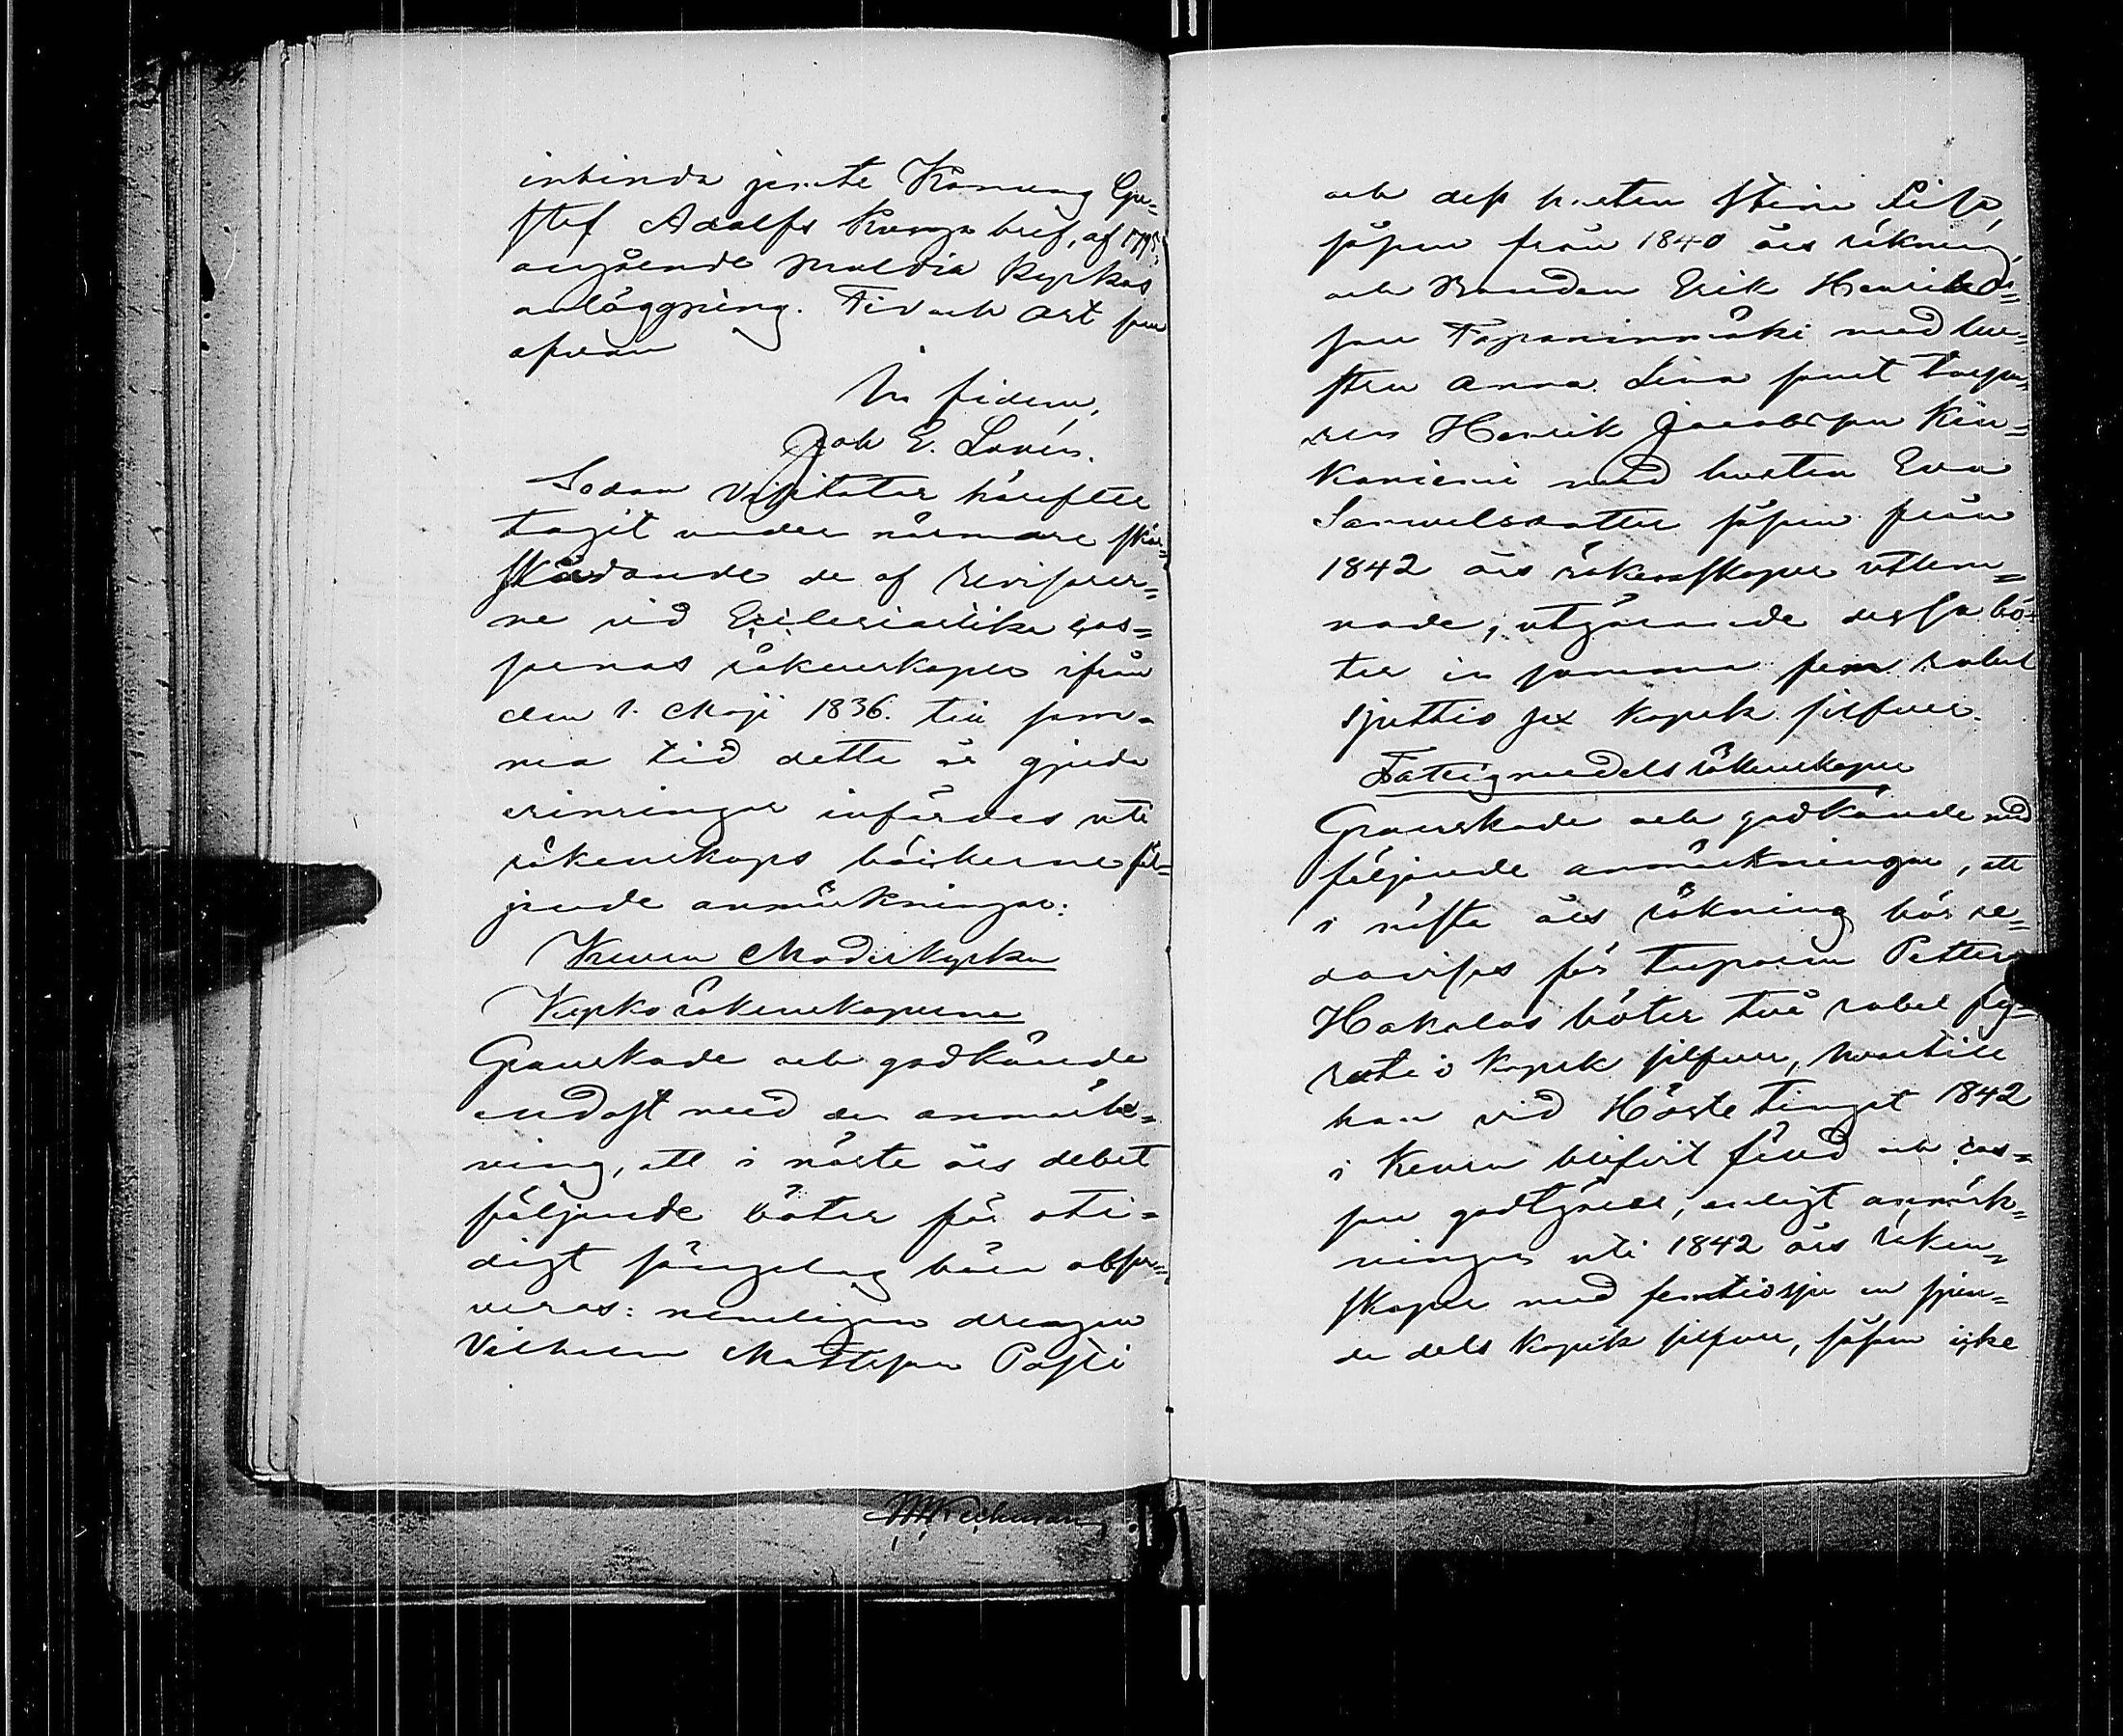 inbinda jemte Konung Gu=
staf Adolfs Kunga bref, af 1795,
angående Multia Kyrkas
anläggning. Tid och Ort som
ofvan
In fidem,
Joh E. Lovén.
Sedan Visitator härefter
tagit under närmare skär=
skådande de af Revisorer=
ne vid Ecclesiastike cas=
sornas räkenskaper ifrån
den 1. Maji 1836. till sam=
ma tid detta år gjorda
erinringar infördes uti
räkenskaps böckerne föl=
jande anmärkningar:
Keuru Moderkyrka
Kyrko räkenskaperne
Granskade och godkände
endast med den anmärk=
ning, att i näste års debet
följande böter för oti=
digt sängelag böra obser=
veras: nemligen drengen
Vilhelm Mattsson Pasti
och dess hustru Stina Lisa,
såsom från 1840 års räkning,
och Bonden Erik Henriks=
son Tapaninmäki med hu=
stru Anna Lena samt torpa=
ren Henrik Jacobsson Kiu=
kaniemi med hustru Eva
Samuelsdotter såsom från
1842 års räkenskaper uttem=
nade, utgörande dessa bö=
ter in summa fem rubel
sjuttio sex kopek silfver.
Fattigmedels räkenskaper
Granskade och godkände med
följande anmärkningar, att
i nästa års räkning bör re=
dovisas för torparen Petter
Hokalas böter två rubel fy=
ratio kopek silfver, hvartill
han vid Höste tinget 1842
i Keuru blifvit fälld och cas=
san godtgöres, enligt anmärk=
ningen uti 1842 års räken=
skaper med femtiosju en sjun=
de dels kopek silfver, såsom icke